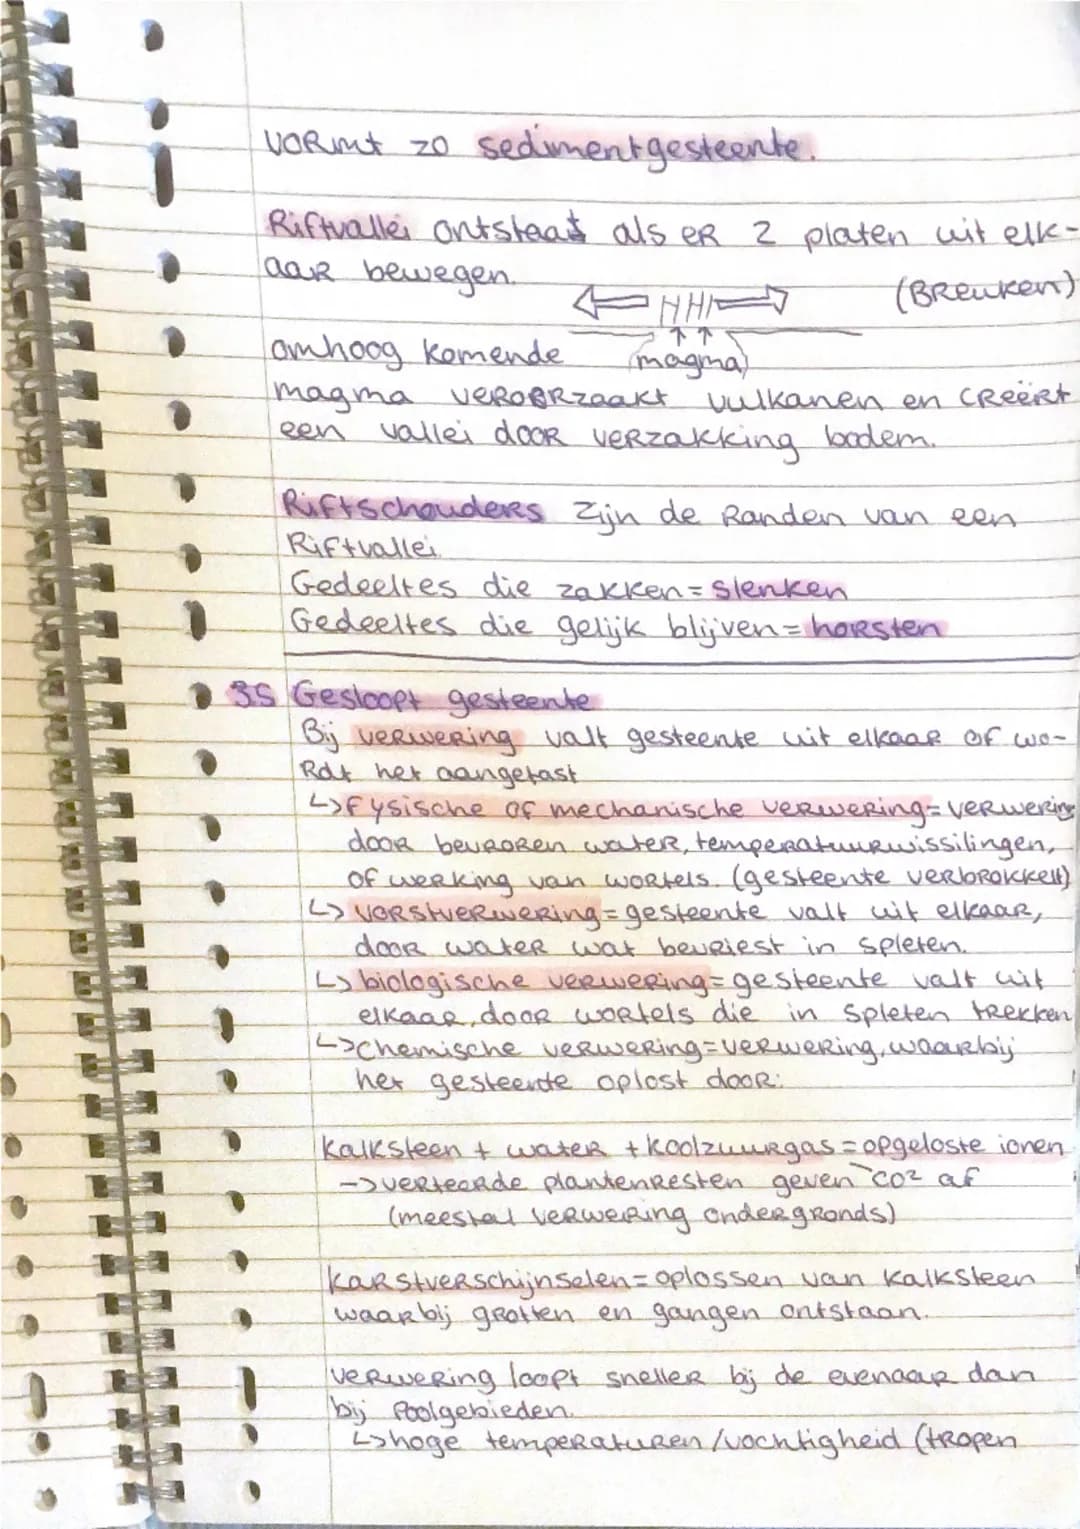 vormt zo sedimentgesteente.
Riftvallei ontstaat als er 2 platen uit elk-
aar bewegen.
(Breuken)
omhoog komende
magma
magma veroorzaakt vulkanen en creëert
een vallei door verzakking bodem.
Riftschouders zijn de randen van een
Riftvallei.
Gedeeltes die zakken = slenken
Gedeeltes die gelijk blijven = horsten
35 Gesloopt gesteente
Bij verwering valt gesteente uit elkaar of wo-
rdt het aangetast
↳ fysische of mechanische verwering = verwering
door bevroren water, temperatuurwissilingen,
of werking van wortels. (gesteente verbrokkelt)
↳ vorstverwering = gesteente valt uit elkaar,
door water wat bevriest in spleten.
↳ biologische verwering = gesteente valt uit
elkaar, door wortels die in spleten trekken
↳ Chemische verwering = verwering, waarbij
het gesteente oplost door:
kalksteen + water + koolzuurgas = opgeloste ionen
-> verteerde plantenresten geven CO2 af
(meestal verwering ondergronds)
karstverschijnselen = oplossen van kalksteen
waarbij grotten en gangen ontstaan.
verwering loopt sneller bij de evenaar dan
bij poolgebieden.
↳ hoge temperaturen/vochtigheid (tropen